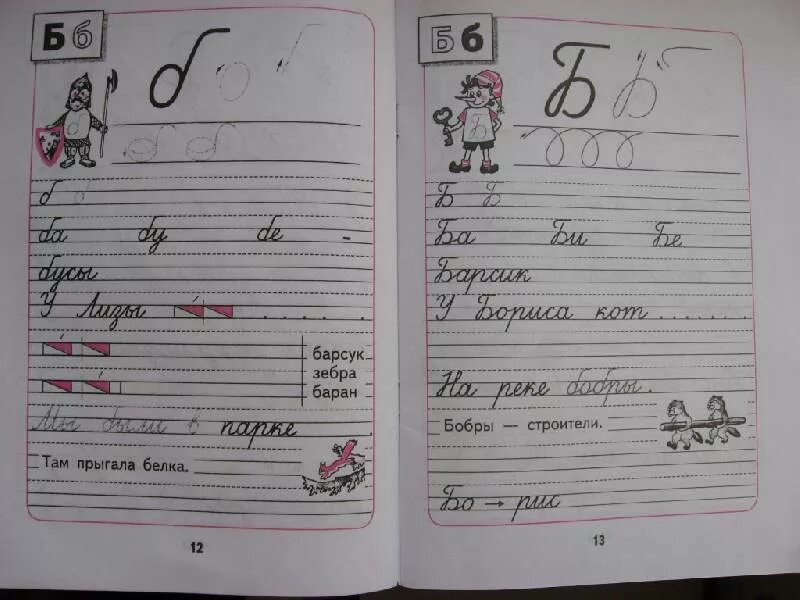 Б б
б
б б
б б
б б
ба бу бе -
бусы
У Лизы . . . . .
барсук
зебра
баран
Мы были в парке .
Там прыгала белка.
12
Б б
Б Б
Б
Б Б
Ба Би Бе
Барсик
У Бориса кот . . . . . .
На реке бобры.
Бобры — строители.
Бо → рис
13